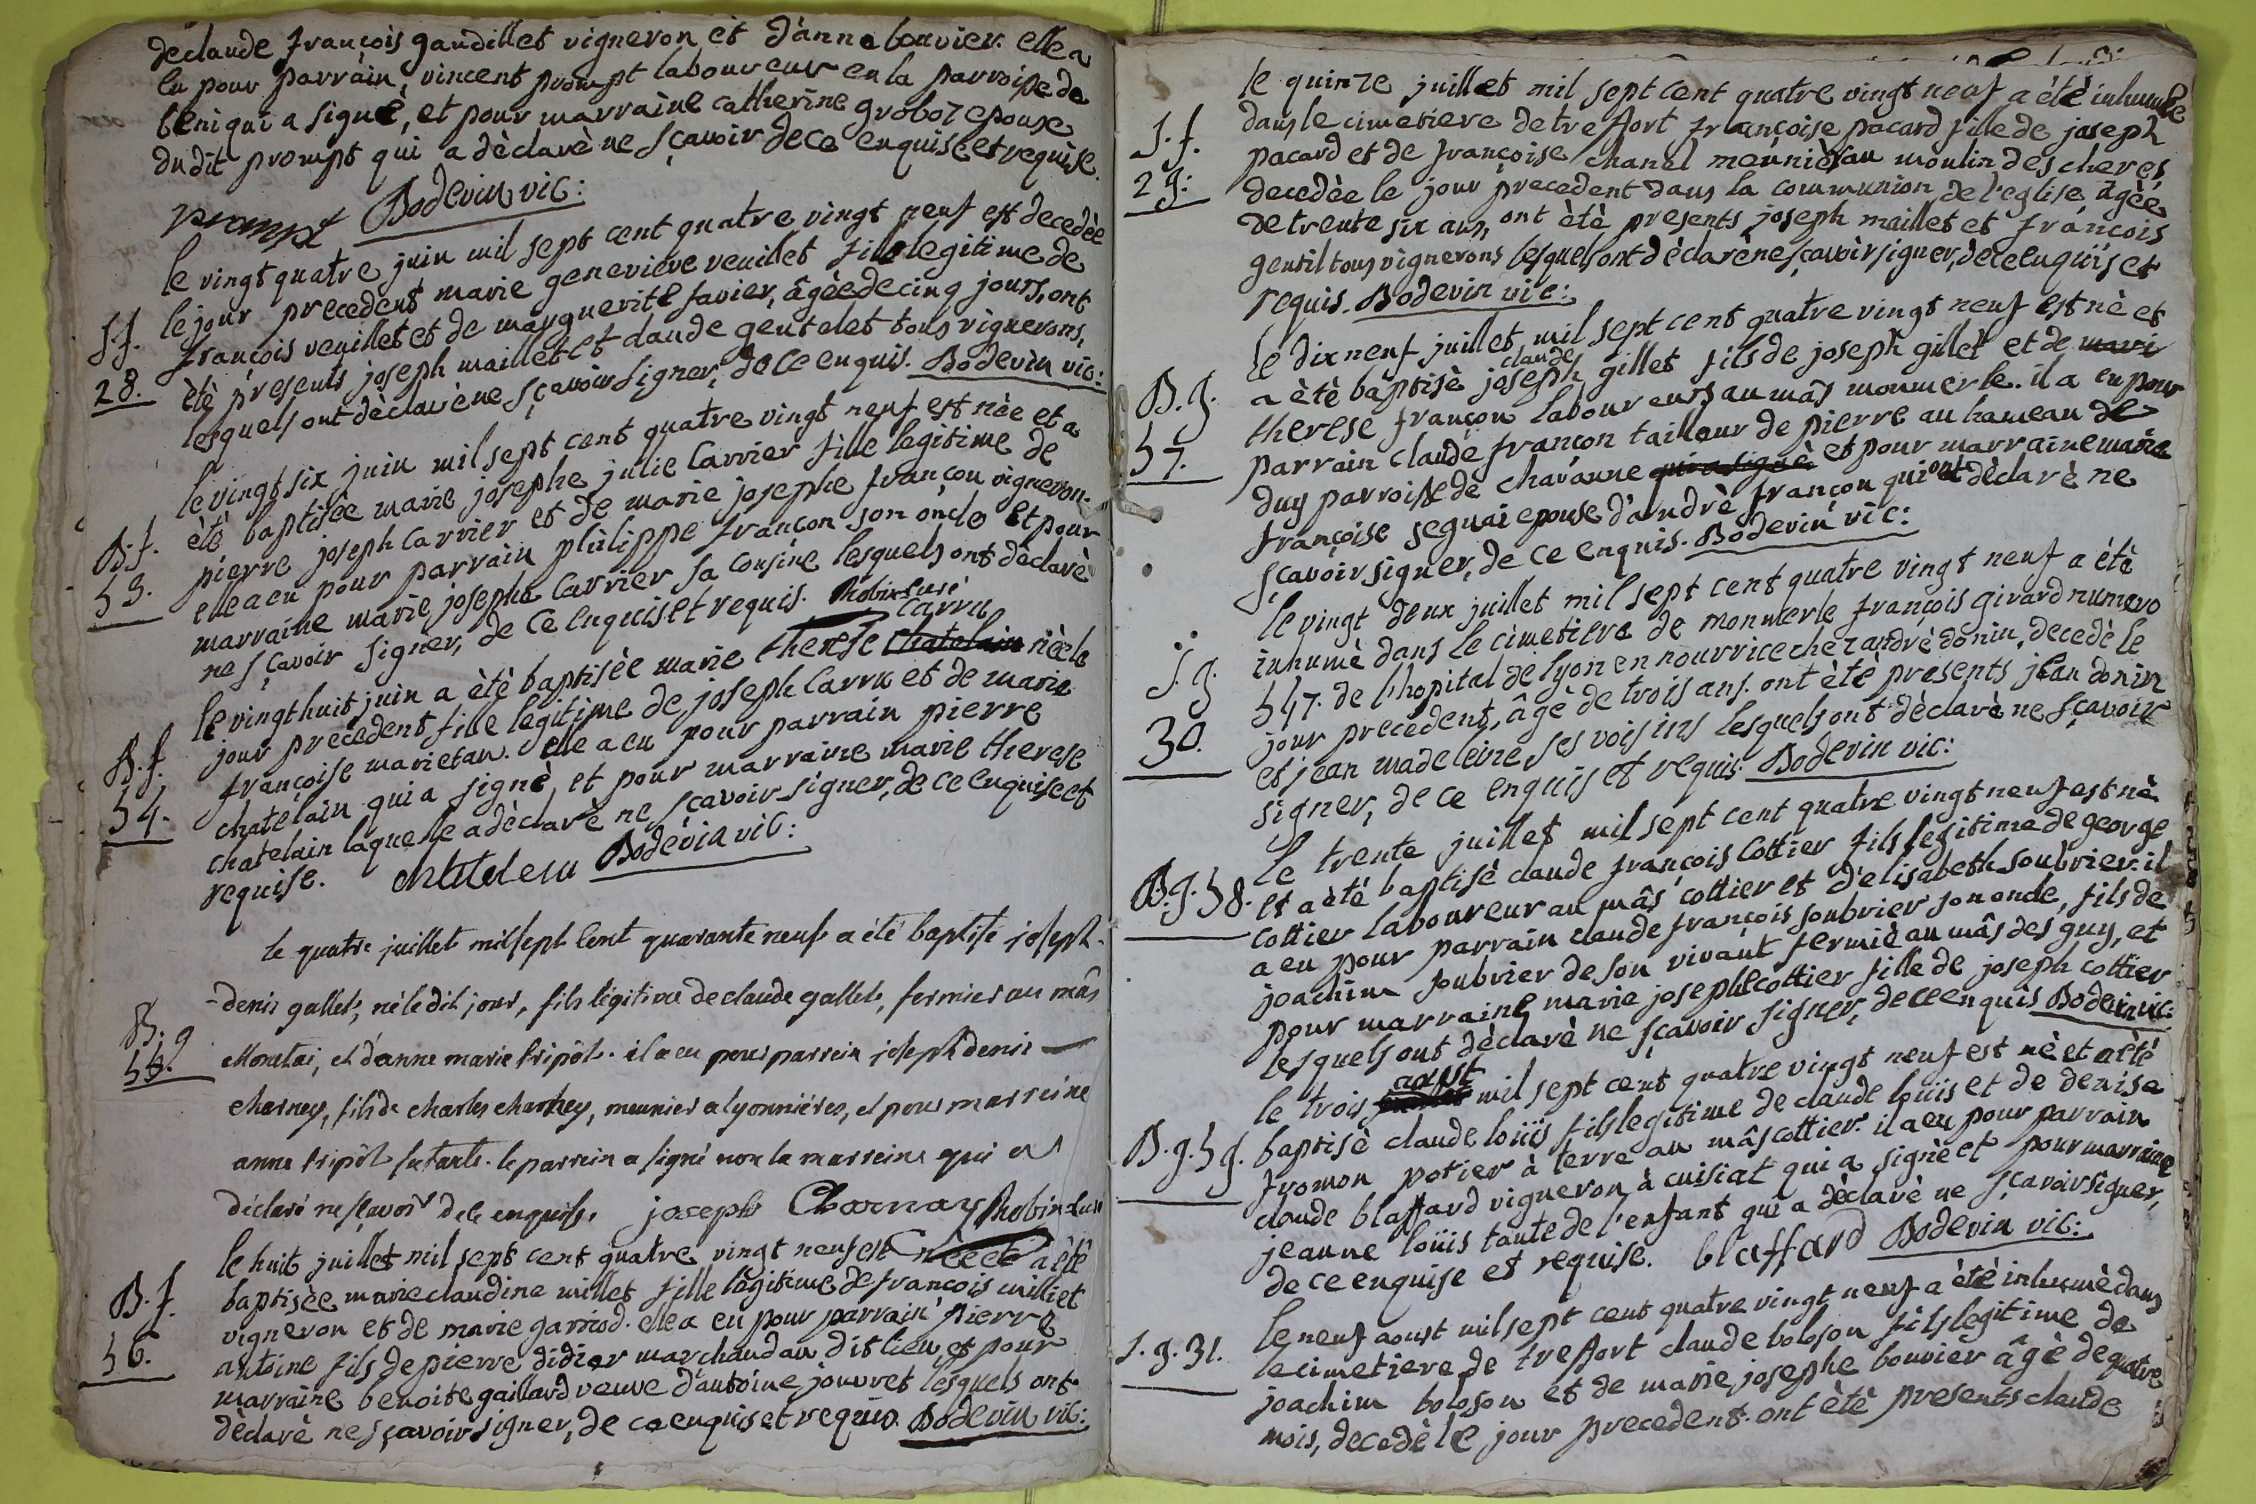 declaude françois gaudillet vigneron et d'anne bouvier. elle a
eu pour parrain, vincent prompt laboureur en la parroisse de
beni qui a signé, et pour marraine catherine groboz epouse
dudit prompt qui a dèclarè ne sçavoir de ce enquise et requise.
prompt Bodevin vic:
le vingt quatre juin mil sept cent quatre vingt neuf est decedèe
le jour precedent marie genevieve veuillet fille legitime de
françois veuillet et de marguerite favier, âgèe de cinq jours, ont
S.f.
28.
ètè presents joseph maillet et claude gentelet tous vignerons,
lesquels ont dèclarè ne sçavoir signer, de ce enquis. Bodevin vic:
le vingt six juin mil sept cent quatre vingt neuf est nèe et a
ètè baptisèe marie josephe julie Carrier fille legitime de
B.f.
53.
pierre joseph Carrier et de marie josephe françon vigneron.
elle a eu pour parrain philippe françon son oncle et pour
marraine marie josephe Carrier sa cousine lesquels ont dèclarè
ne sçavoir signer, de ce enquis et requis. Robin curé
Carru
le vingt huit juin a ètè baptisèe marie therese chatelain nèe le
jour precedent fille legitime de joseph Carru et de marie
B.f.
54.
françoise marietan. elle a eu pour parrain pierre
chatelain qui a signè, et pour marraine marie therese
chatelain laquelle a dèclarè ne sçavoir signer, de ce enquise et
requise. chatelein Bodevin vic:
le quatre juillet mil sept cent quarante neuf a été baptisé joseph
denis gallet, né ledit jour, fils légitime de claude gallet, fermier au mâs
B.g
55.
Monetai, et d'anne marie tripôz. il a eu pour parrein joseph denis
charney, fils de charles charney, meunier a lyonnières, et pour marreine
anne tripôz sa tante. le parrein a signé non la marreine qui a
déclaré ne sçavoir de ce enquise. joseph Charnay Robin curé
le huit juillet mil sept cent quatre vingt neuf est nèe et a ètè
B.f.
56.
baptisèe marie claudine millet fille legitime de françois milliet
vigneron et de marie garriod. elle a eu pour parrain pierre
antoine fils de pierre didier marchand au dit lieu et pour
marraine benoite gaillard veuve d'antoine jouvret lesquels ont
dèclarè ne sçavoir signer, de ce enquis et requis. Bodevin vic:
le quinze juillet mil sept cent quatre vingt neuf a étè inhumèe
S.f.
29:
dans le cimetiere de treffort françoise pacard fille de joseph
pacard et de françoise chanel meunièr au moulin des cheres
decedèe le jour precedent dans la communion de l'eglise âgèe
de trente six ans, ont ètè presents joseph maillet et françois
gentil tous vignerons lesquels ont dèclarè ne sçavoir signer, de ce enquis et
requis. Bodevin vic:
le dix neuf juillet mil sept cent quatre vingt neuf est nè et
claude
B.g.
57.
a ètè baptisè joseph gillet fils de joseph gillet et de mari
therese françon laboureurs au mâs monmerle. il a eu pour
parrain claude françon tailleur de pierre au hameau de
duy parroisse de chavanne qui a signè et pour marraine marie
françoise seguai epouse d'andrè françon qui ont dèclarè ne
sçavoir signer, de ce enquis. Bodevin vic:
le vingt deux juillet mil sept cent quatre vingt neuf a ètè
S.g.
30.
inhumè dans le cimetiere de monmerle françois girard numero
547. de l'hopital de lyon en nourrice chez andrè donin, decedè le
jour precedent, âgè de trois ans. ont ètè presents jean donin
et jean madeleine ses voisins lesquels ont dèclarè ne sçavoir
signer, de ce enquis et requis. Bodevin vic:
le trente juillet mil sept cent quatre vingt neuf est nè
B.g. 58.
et a été baptisè claude françois Cottier fils legitime de george
Cottier laboureur au mâs cottier et d'elisabeth soubrier. il
a eu pour parrain claude françois soubrier son oncle, fils de
joachim soubrier de son vivant fermiè au mâs des guy, et
pour marraine marie josephe cottier fille de joseph cottier
lesquels ont dèclarè ne sçavoir signer, de ce enquis Bodevin vic:
aoust
le trois mil sept cent quatre vingt neuf est nè et a ètè
B.g. 59.
baptisè claude loüis fils legitime de claude loüis et de denise
fromon potier à terre au mâs cottier. il a eu pour parrain
claude blaffard vigneron à cuisiat qui a signè et pour marraine
jeanne loüis tante de l'enfant qui a dèclarè ne sçavoir signer,
de ce enquise et requise. blaffard Bodevin vic:
le neuf aoust mil sept cent quatre vingt neuf a ètè inhumè dans
S.g. 31.
le cimetiere de treffort claude boloson fils legitime de
joachim boloson et de marie josephe bouvier âgè de quatre
mois, decedè le jour precedent. ont ètè presents claude